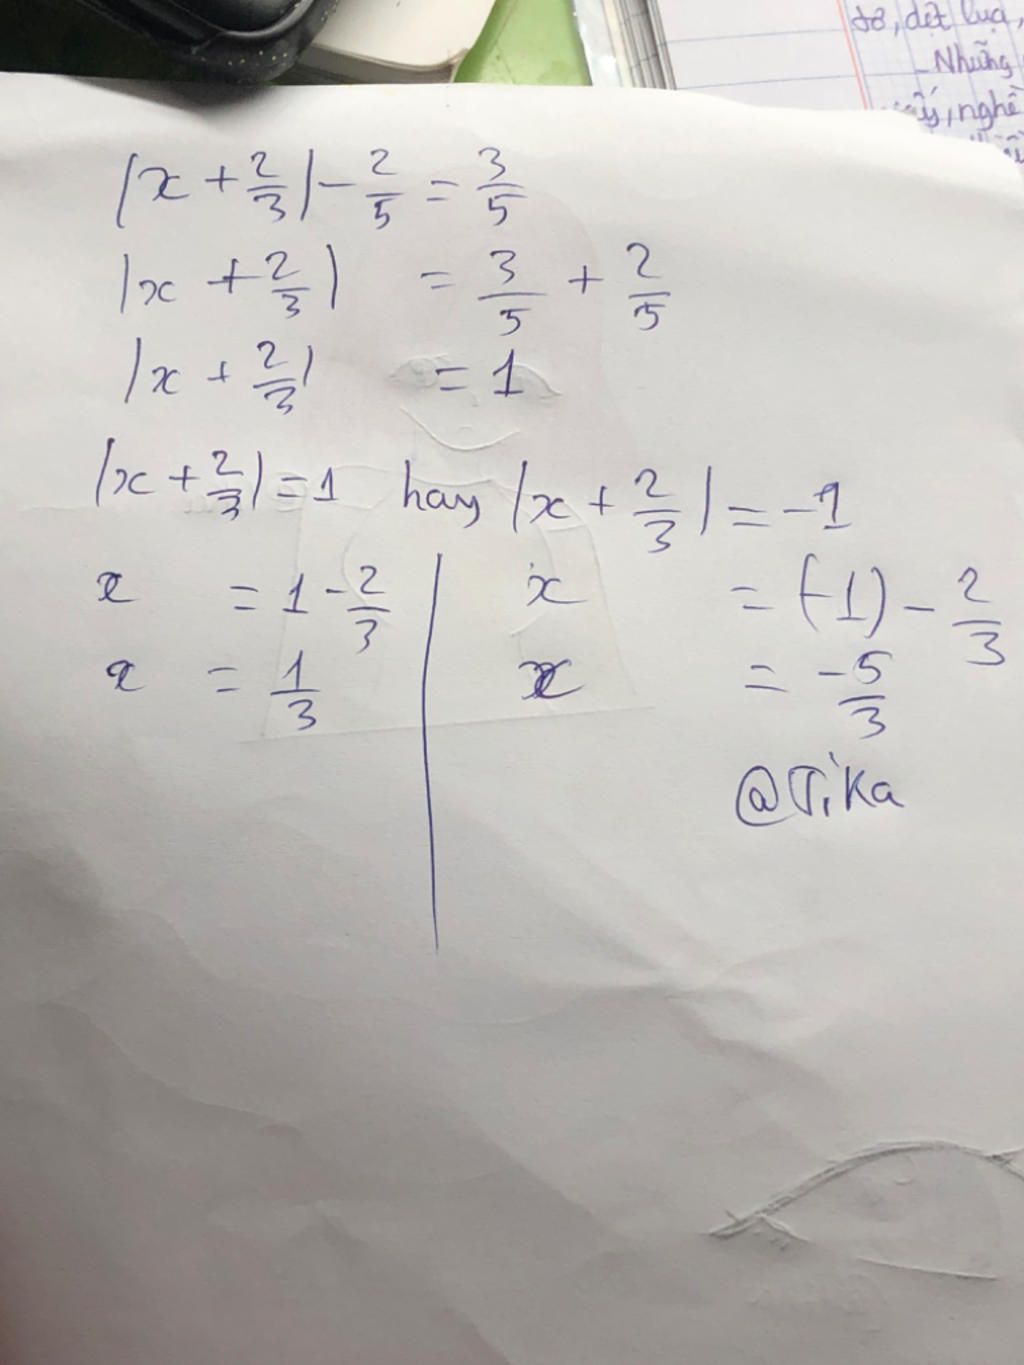 tơ, dệt lụa,
- Những
nghề
|x + 2/3| - 2/5 = 3/5
|x + 2/3| = 3/5 + 2/5
|x + 2/3| = 1
|x + 2/3| = 1 hay |x + 2/3| = -1
x = 1 - 2/3 | x = (-1) - 2/3
x = 1/3 | x = -5/3
@Tika